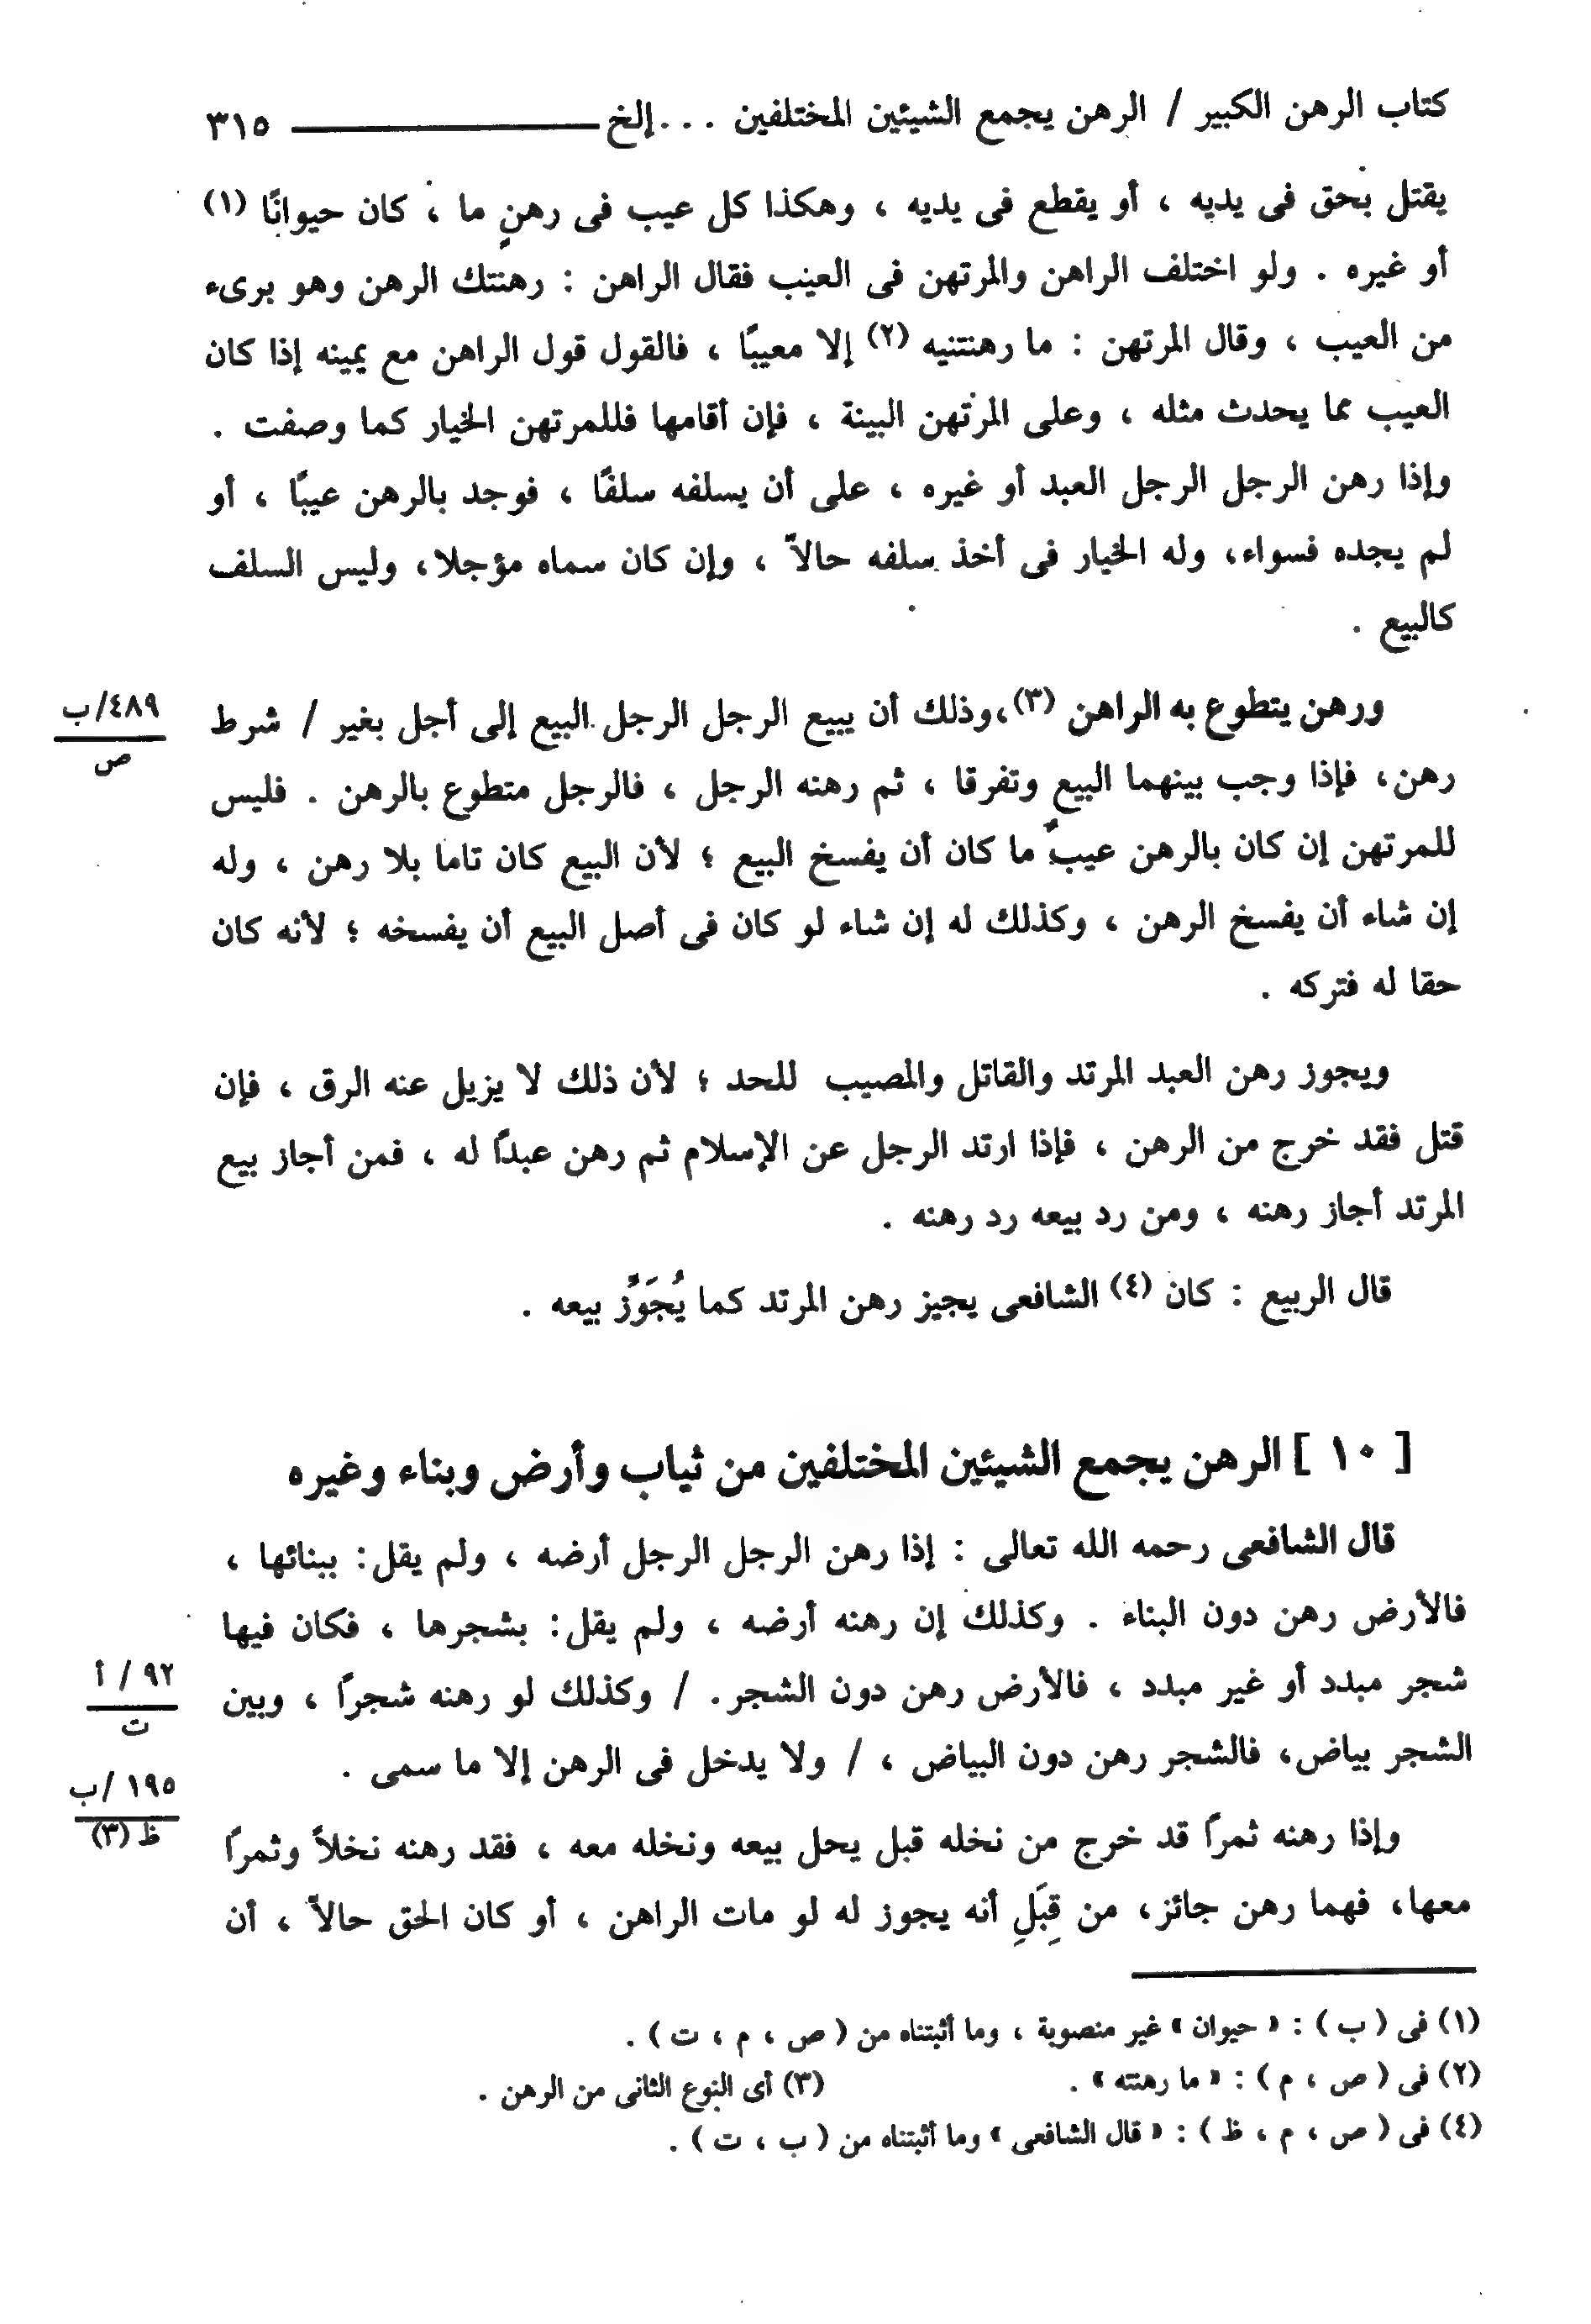 كتاب الرهن الكبير / الرهن يجمع الشيئين المختلفين . . . إلخ ٣١٥
يقتل بحق فى يديه ، أو يقطع فى يديه ، وهكذا كل عيب فى رهنٍ ما ، كان حيوانًا (١)
أو غيره . ولو اختلف الراهن والمرتهن فى العيب فقال الراهن : رهنتك الرهن وهو برىء
من العيب ، وقال المرتهن : ما رهنتنيه (٢) إلا معيبًا ، فالقول قول الراهن مع يمينه إذا كان
العيب مما يحدث مثله ، وعلى المرتهن البينة ، فإن أقامها فللمرتهن الخيار كما وصفت .
وإذا رهن الرجل الرجل العبد أو غيره ، على أن يسلفه سلفًا ، فوجد بالرهن عيبًا ، أو
لم يجده فسواء، وله الخيار فى أخذ سلفه حالاً ، وإن كان سماه مؤجلا، وليس السلف
كالبيع .
ورهن يتطوع به الراهن (٣)،وذلك أن يبيع الرجل الرجل البيع إلى أجل بغير / شرط
٤٨٩/ب
ص
رهن، فإذا وجب بينهما البيع وتفرقا ، ثم رهنه الرجل ، فالرجل متطوع بالرهن . فليس
للمرتهن إن كان بالرهن عيبٌ ما كان أن يفسخ البيع ؛ لأن البيع كان تاما بلا رهن ، وله
إن شاء أن يفسخ الرهن ، وكذلك له إن شاء لو كان فى أصل البيع أن يفسخه ؛ لأنه كان
حقا له فتركه .
ويجوز رهن العبد المرتد والقاتل والمصيب للحد ؛ لأن ذلك لا يزيل عنه الرق ، فإن
قتل فقد خرج من الرهن ، فإذا ارتد الرجل عن الإسلام ثم رهن عبدًا له ، فمن أجاز بيع
المرتد أجاز رهنه ، ومن رد بيعه رد رهنه .
قال الربيع : كان (٤) الشافعى يجيز رهن المرتد كما يُجَوِّز بيعه .
[ ١٠ ] الرهن يجمع الشيئين المختلفين من ثياب وأرض وبناء وغيره
قال الشافعى رحمه الله تعالى : إذا رهن الرجل الرجل أرضه ، ولم يقل: ببنائها ،
فالأرض رهن دون البناء . وكذلك إن رهنه أرضه ، ولم يقل: بشجرها ، فكان فيها
شجر مبدد أو غير مبدد ، فالأرض رهن دون الشجر. / وكذلك لو رهنه شجرًا ، وبين
٩٢ / أ
ت
الشجر بياض، فالشجر رهن دون البياض ، / ولا يدخل فى الرهن إلا ما سمى .
١٩٥ /ب
ظ (٣)
وإذا رهنه ثمرًا قد خرج من نخله قبل يحل بيعه ونخله معه ، فقد رهنه نخلاً وثمرًا
معها، فهما رهن جائز، من قِبَلِ أنه يجوز له لو مات الراهن ، أو كان الحق حالاً ، أن
(١) فى ( ب ) : « حيوان » غير منصوبة ، وما أثبتناه من ( ص ، م ، ت ) .
(٢) فى ( ص ، م ) : « ما رهنته » . (٣) أى النوع الثانى من الرهن .
(٤) فى ( ص ، م ، ظ ) : « قال الشافعى » وما أثبتناه من ( ب ، ت ) .